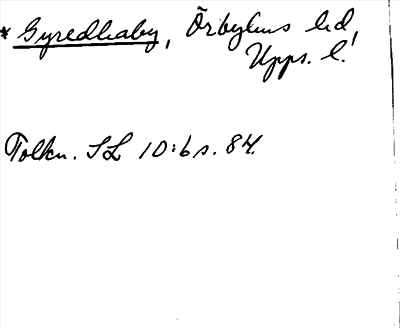 * Gyredhaby, Örbyhus hd,
Upps. l.
Tolkn. SL 10:6 s. 84.